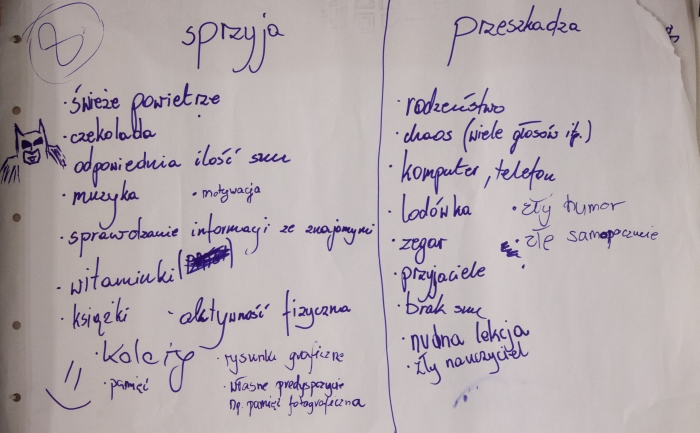 8
sprzyja
• świeże powietrze
• czekolada
odpowiednia ilość snu
• muzyka • motywacja
• sprawdzanie informacji ze znajomymi
• witaminki
• książki • aktywność fizyczna
• kolory • rysunki graficzne
• pamięć • własne predyspozycje
np. pamięć fotograficzna
przeszkadza
• rodzeństwo
• chaos (wiele głosów itp.)
• komputer, telefon
• lodówka • zły humor
• zegar • złe samopoczucie
• przyjaciele
• brak snu
• nudna lekcja
• zły nauczyciel